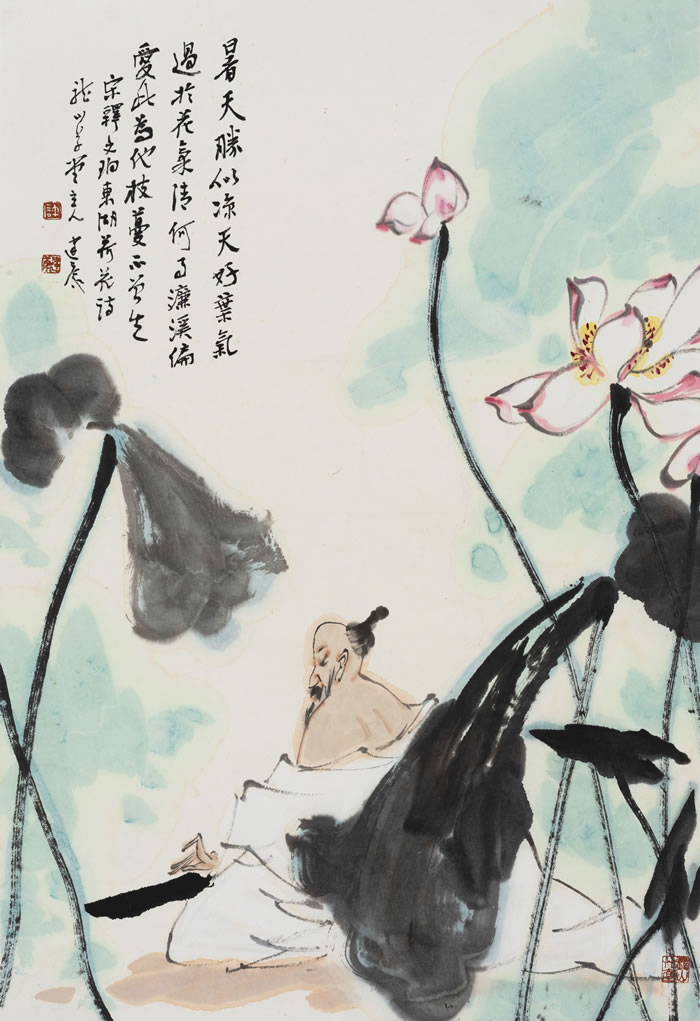 暑天勝似凉天好葉氣
過於花氣清何事濂溪偏
愛此為他枝蔓不曾生
宋釋文珦東湖荷花詩
草堂主人